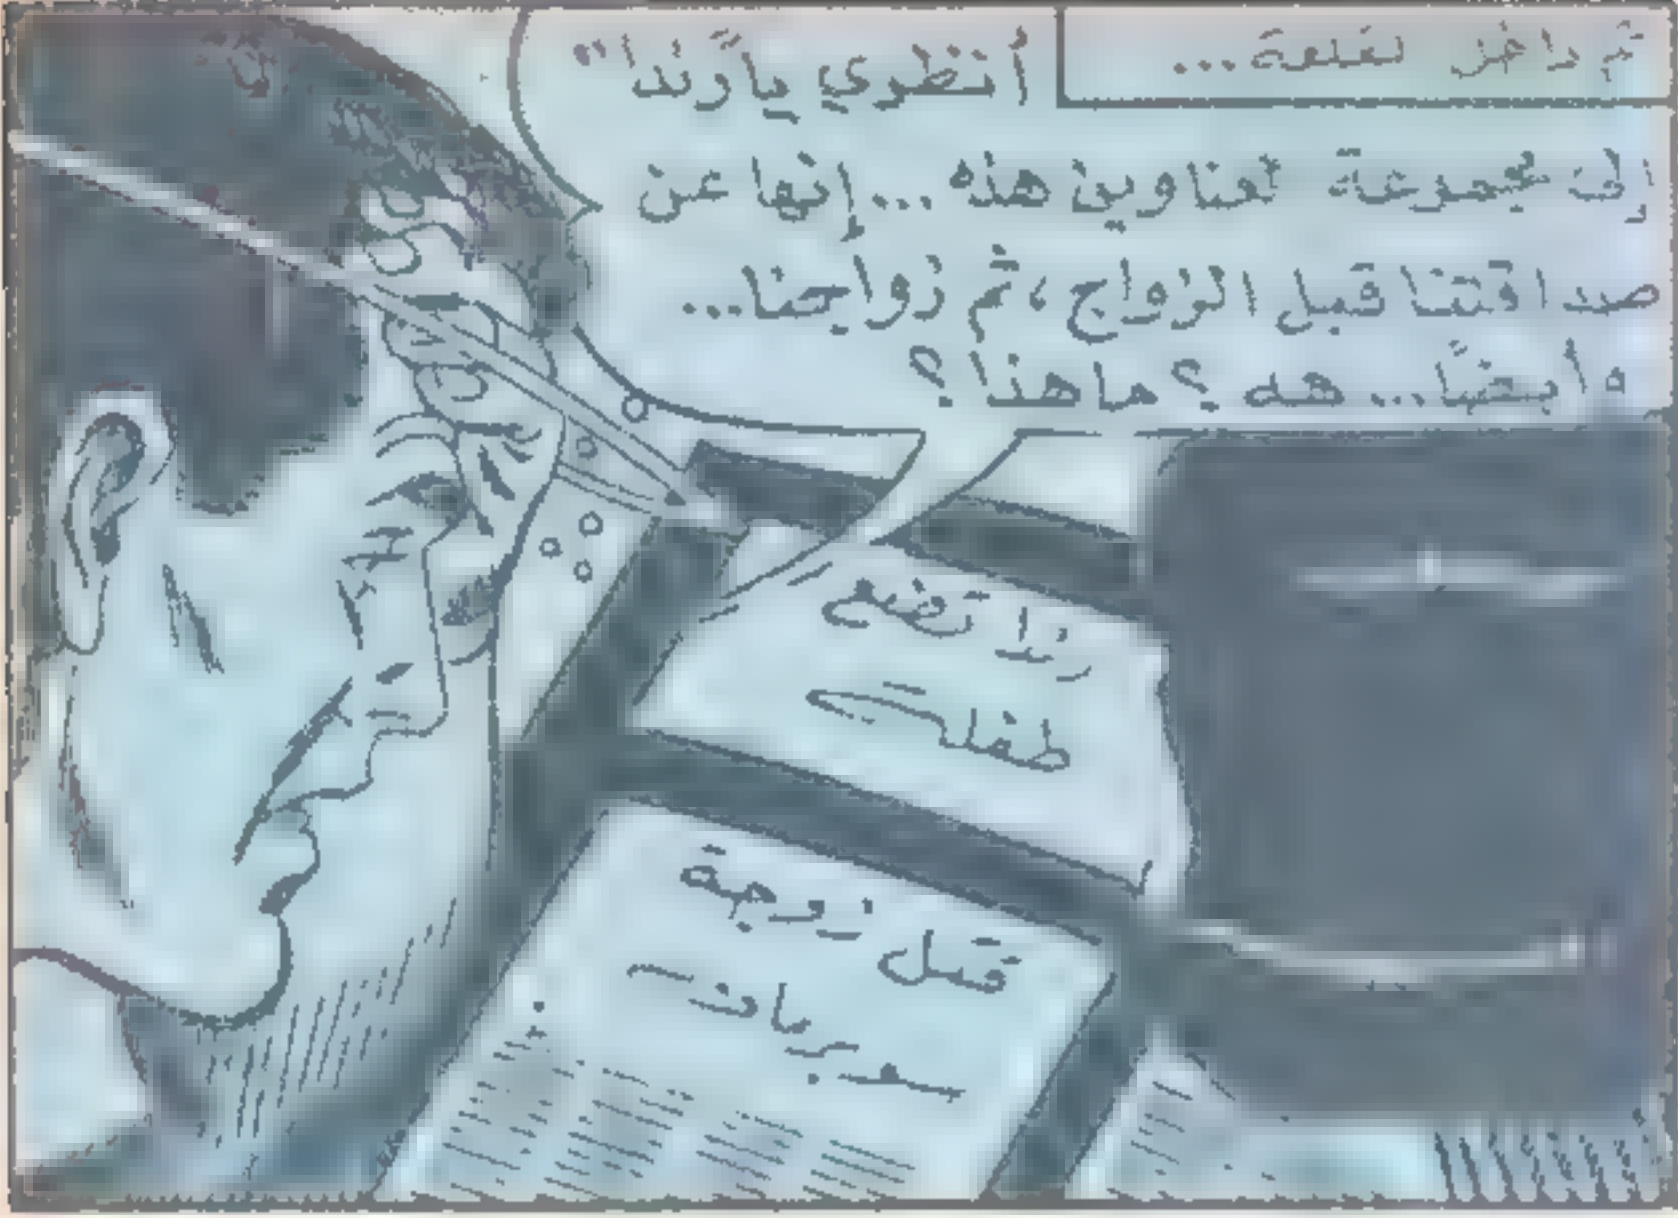 ثم داخل القلعة...
أنظري يا "رندا"
إلى مجموعة العناوين هذه... إنها عن
صداقتنا قبل الزواج، ثم زواجنا...
وأيضًا... هه؟ ما هذا؟
رندا تضع
طفلـ
قتل زوجة
سبربان